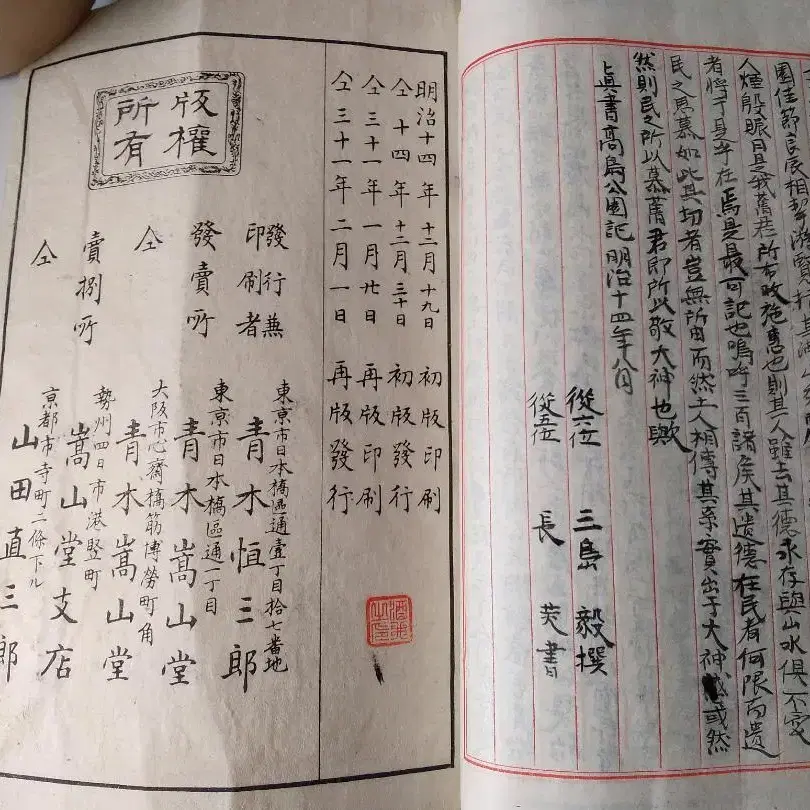 園佳節良辰相
人煙殷賑日是我舊君所布政施惠也則其人雖去其德永存與山水俱不變
者將于是乎在焉是最可記也嗚呼三百諸侯其遺德在民者何限而遺
民之思慕如此其切者豈無所由而然土人相傳其系實出于大神或然
然則民之所以慕舊君即所以敬大神也歟
真書高島公園記明治十四年八月
從六位 三島毅撰
從五位 長炗書
明治十四年十二月十九日 初版印刷
仝十四年十二月三十日 初版發行
仝三十一年一月廿日 再版印刷
仝三十一年二月一日 再版發行
版權
所有
發行兼
印刷者
東京市日本橋區通壹丁目拾七番地
青木恒三郎
發賣所
東京市日本橋區通一丁目
青木嵩山堂
仝
大阪市心齋橋筋博勞町角
青木嵩山堂
賣捌所
勢州四日市港竪町
嵩山堂支店
仝
京都市寺町二條下ル
山田直三郎